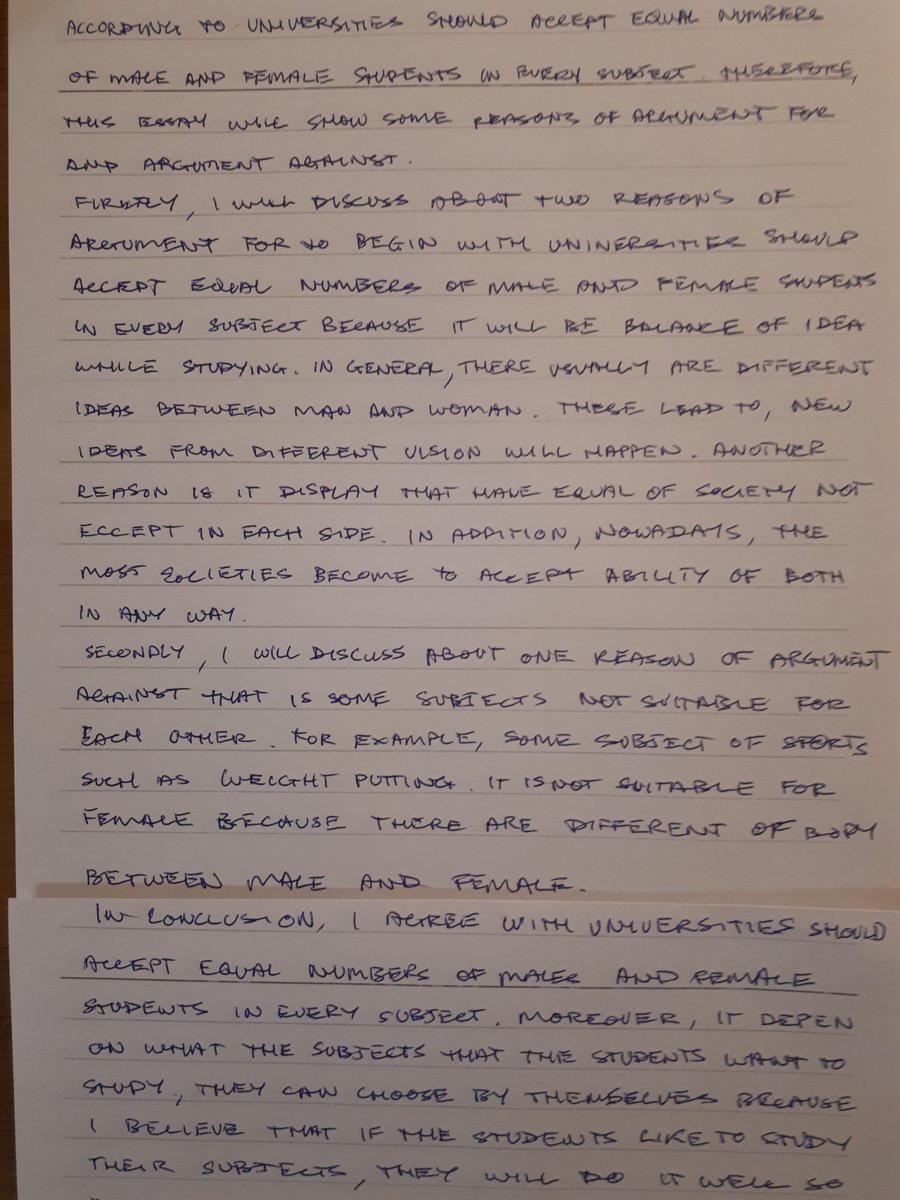 ACCORDING TO UNIVERSITIES SHOULD ACCEPT EQUAL NUMBERS
OF MALE AND FEMALE STUDENTS IN EVERY SUBJECT. THEREFORE,
THIS ESSAY WILL SHOW SOME REASONS OF ARGUMENT FOR
AND ARGUMENT AGAINST.
FIRSTLY, I WILL DISCUSS ABOUT TWO REASONS OF
ARGUMENT FOR TO BEGIN WITH UNINERSITIES SHOULD
ACCEPT EQUAL NUMBERS OF MALE AND FEMALE STUDENTS
IN EVERY SUBJECT BECAUSE IT WILL BE BALANCE OF IDEA
WHILE STUDYING. IN GENERAL, THERE USUALLY ARE DIFFERENT
IDEAS BETWEEN MAN AND WOMAN. THESE LEAD TO, NEW
IDEAS FROM DIFFERENT VISION WILL HAPPEN. ANOTHER
REASON IS IT DISPLAY THAT HAVE EQUAL OF SOCIETY NOT
ECCEPT IN EACH SIDE. IN ADDITION, NOWADAYS, THE
MOST SOCIETIES BECOME TO ACCEPT ABILITY OF BOTH
IN ANY WAY.
SECONDLY, I WILL DISCUSS ABOUT ONE REASON OF ARGUMENT
AGAINST THAT IS SOME SUBJECTS NOT SUITABLE FOR
EACH OTHER. FOR EXAMPLE, SOME SUBJECT OF SPORTS
SUCH AS WEIGHT PUTTING. IT IS NOT SUITABLE FOR
FEMALE BECAUSE THERE ARE DIFFERENT OF BODY
BETWEEN MALE AND FEMALE.
IN CONCLUSION, I AGREE WITH UNIVERSITIES SHOULD
ACCEPT EQUAL NUMBERS OF MALES AND FEMALE
STUDENTS IN EVERY SUBJECT. MOREOVER, IT DEPEN
ON WHAT THE SUBJECTS THAT THE STUDENTS WANT TO
STUDY, THEY CAN CHOOSE BY THEMSELVES BECAUSE
I BELIEVE THAT IF THE STUDENTS LIKE TO STUDY
THEIR SUBJECTS, THEY WILL DO IT WELL SO